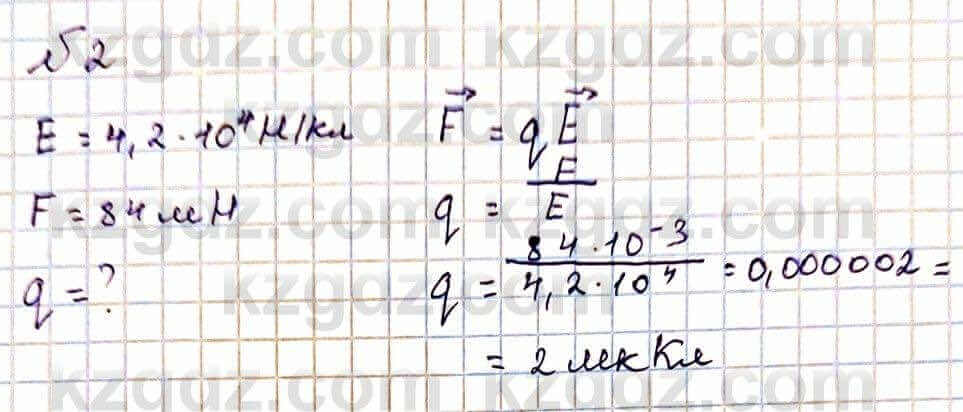 №2
E = 4,2·10⁴ Н/кл
F = 84 мН
q = ?
F⃗ = qE⃗
q = F/E
q = 84·10⁻³/4,2·10⁴ = 0,000002 =
= 2 мкКл
kzgdz.com kzgdz.com
kzgdz.com
kzgdz.com
kzgdz.com kzgdz.com
kzgdz.com kzgdz.com